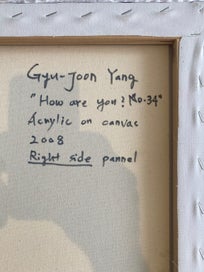 Gyu-Joon Yang
"How are you? No.34"
Acrylic on canvas
2008
Right side pannel